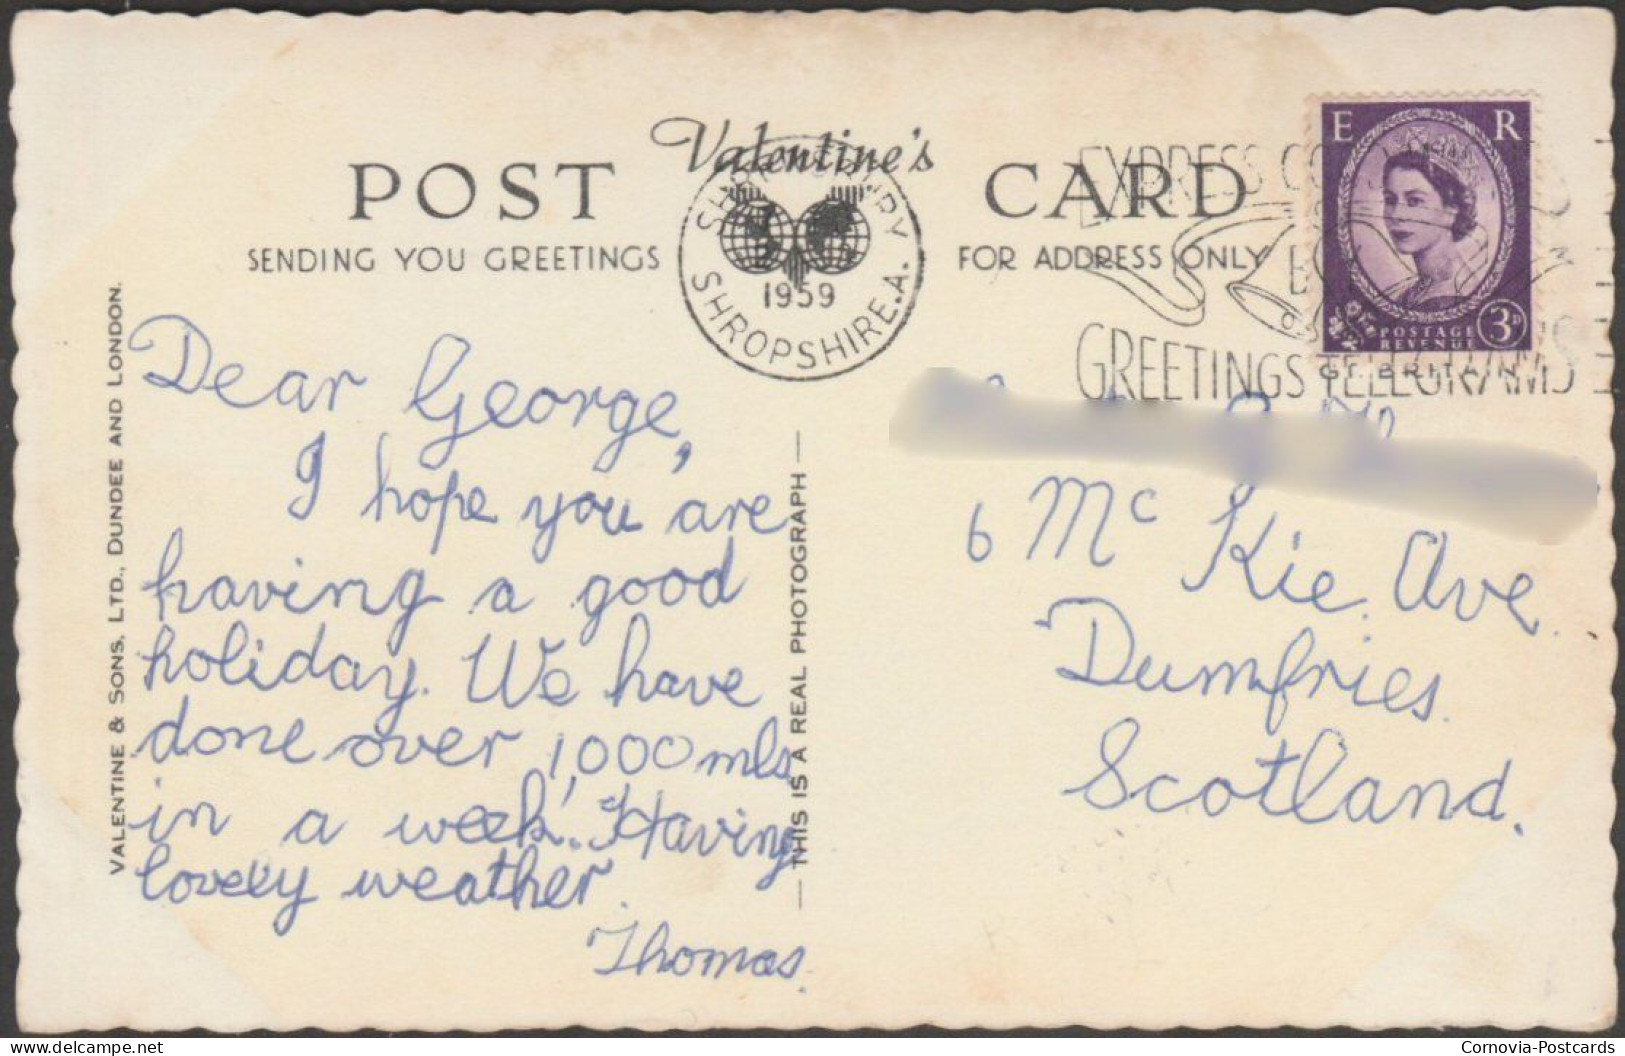 Valentine's
POST CARD
SENDING YOU GREETINGS
FOR ADDRESS ONLY
SHREWSBURY
1959
SHROPSHIRE.A.
EXPRESS
GREETINGS TELEGRAMS
E R
POSTAGE
REVENUE
3D
VALENTINE & SONS, LTD., DUNDEE AND LONDON.
THIS IS A REAL PHOTOGRAPH
Dear George,
I hope you are
having a good
holiday. We have
done over 1,000 mls
in a week! Having
lovely weather.
Thomas.
6 Mc Kie Ave.
Dumfries.
Scotland.
www.delcampe.net
Cornovia-Postcards